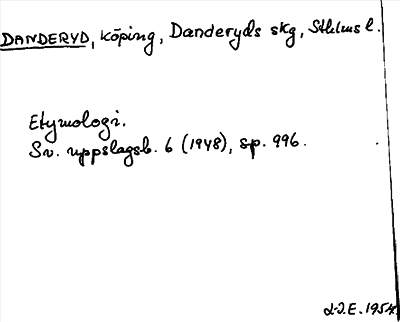 DANDERYD, köping, Danderyds skg, Sthlms l.
Etymologi.
Sv. uppslagsb. 6 (1948), sp. 996.
L-I.E. 1954